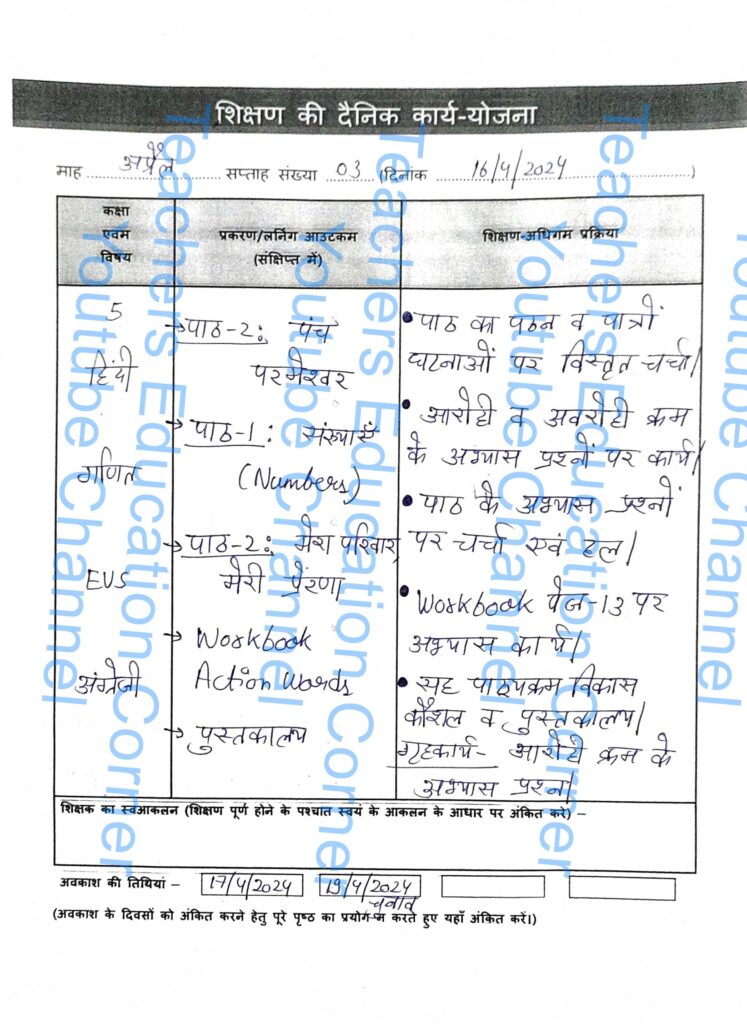 शिक्षण की दैनिक कार्य-योजना
माह अप्रैल सप्ताह संख्या 03 (दिनांक 16/4/2024)
कक्षा एवम विषय
प्रकरण/लर्निंग आउटकम (संक्षिप्त में)
शिक्षण-अधिगम प्रक्रिया
5
हिंदी
गणित
EVS
अंग्रेजी
→ पाठ-2: पंच
परमेश्वर
→ पाठ-1: संख्याएँ
(Numbers)
→ पाठ-2: मेरा परिवार,
मेरी प्रेरणा
→ Workbook
Action Words
→ पुस्तकालय
• पाठ का पठन व पात्रों
घटनाओं पर विस्तृत चर्चा।
• आरोही व अवरोही क्रम
के अभ्यास प्रश्नों पर कार्य।
• पाठ के अभ्यास प्रश्नों
पर चर्चा एवं हल।
• Workbook पेज-13 पर
अभ्यास कार्य।
• सह पाठ्यक्रम विकास
कौशल व पुस्तकालय।
गृहकार्य- आरोही क्रम के
अभ्यास प्रश्न।
शिक्षक का स्वआकलन (शिक्षण पूर्ण होने के पश्चात स्वयं के आकलन के आधार पर अंकित करे) –
अवकाश की तिथियां – 17/4/2024 19/4/2024
चुनाव
(अवकाश के दिवसों को अंकित करने हेतु पूरे पृष्ठ का प्रयोग न करते हुए यहाँ अंकित करें।)
Teachers Education Corner
Youtube Channel
Teachers Education Corner
Youtube Channel
Teachers Education Corner
Youtube Channel